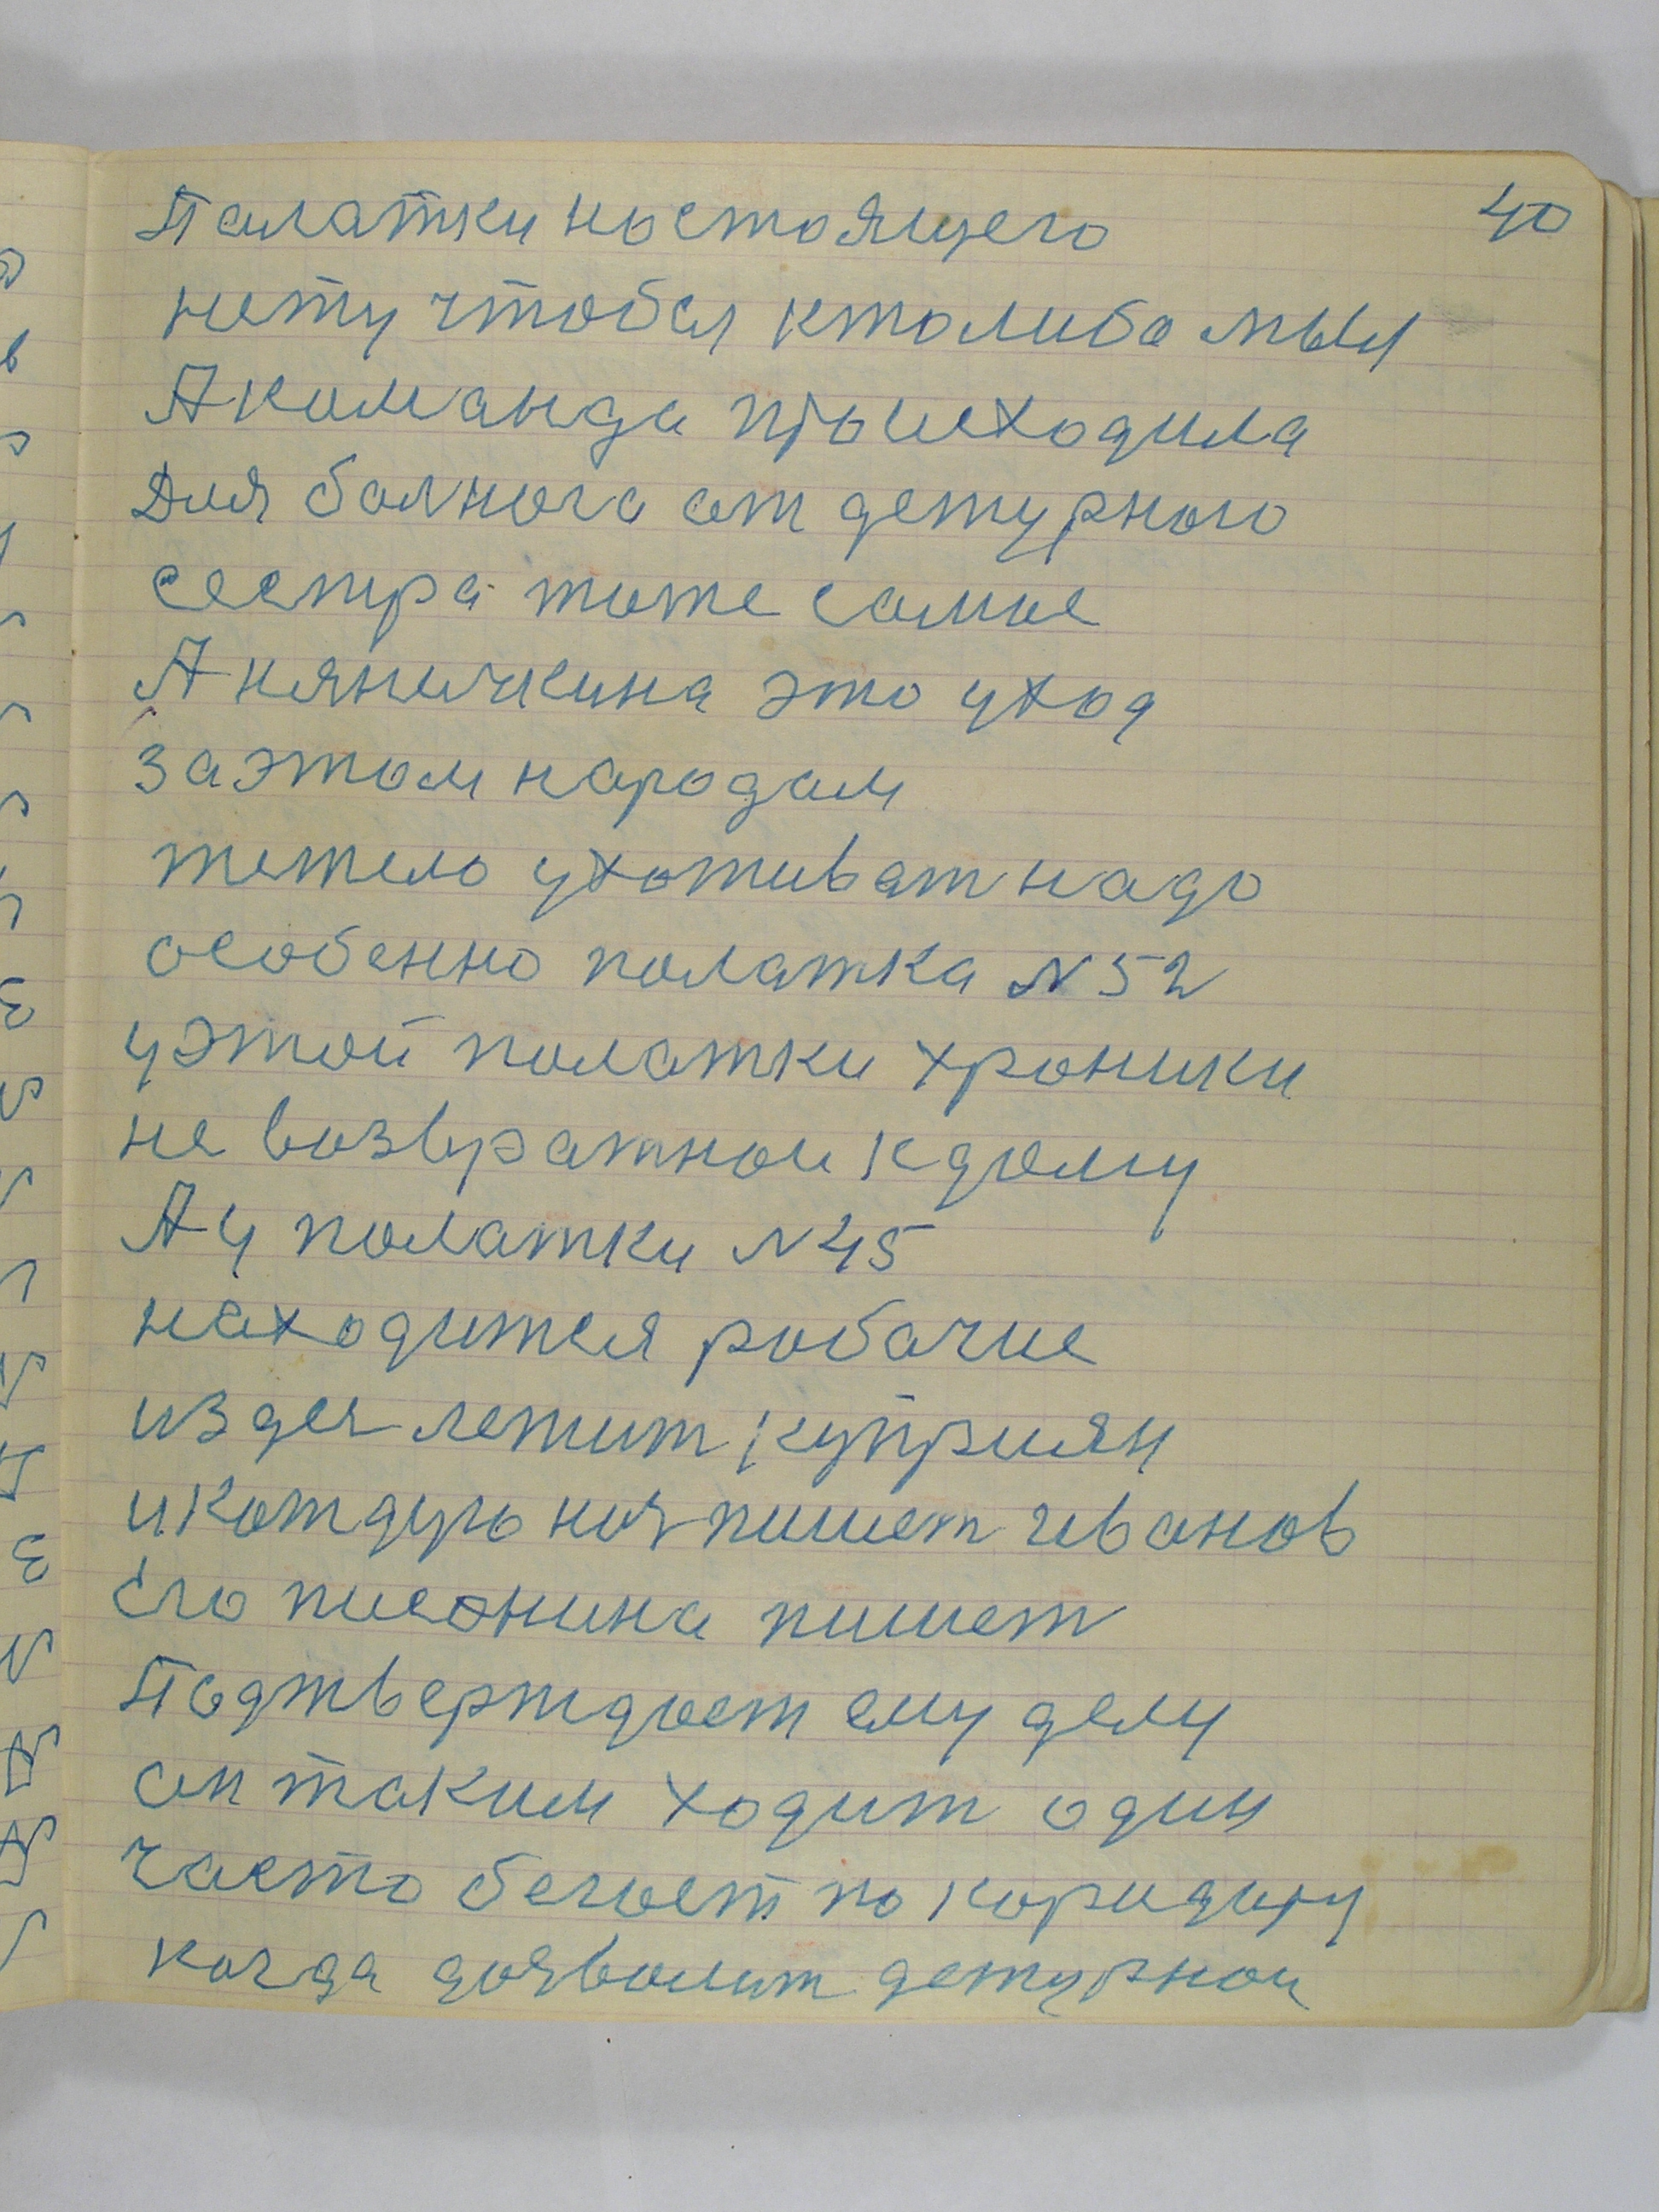 40
Палатки ностоящего
нету чтобы ктолиба мыл
А команда происходила
Для балнога от детурного
сестра тоже самое
А няничкина это уход
заэтом народам
тежело ухотиват надо
особенно полатка N 52
уэтой полатки хроники
не возвратнои кдому
А у полатки N 45
находится робочие
издея летит куприян
икотдую ноч пишет иванов
Его писонина пишет
Подтверждоет ему делу
он таким ходит один
часто бегоет по коридору
когда дозволит детурнои